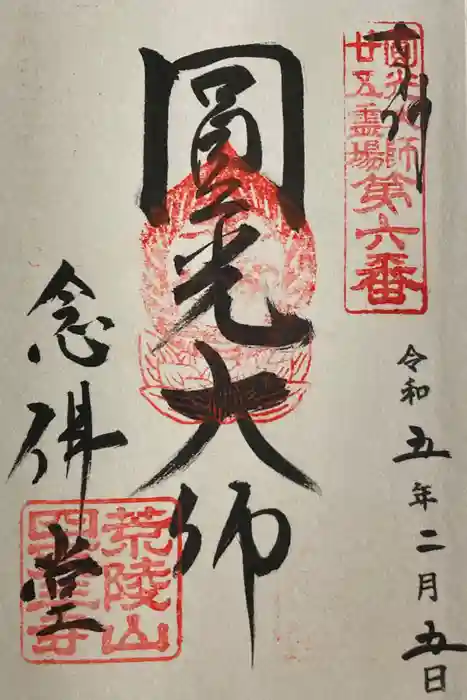 奉拝
圓光大師
廿五霊場第六番
令和五年二月五日
圓光大師
念佛堂
荒陵山
四天王寺